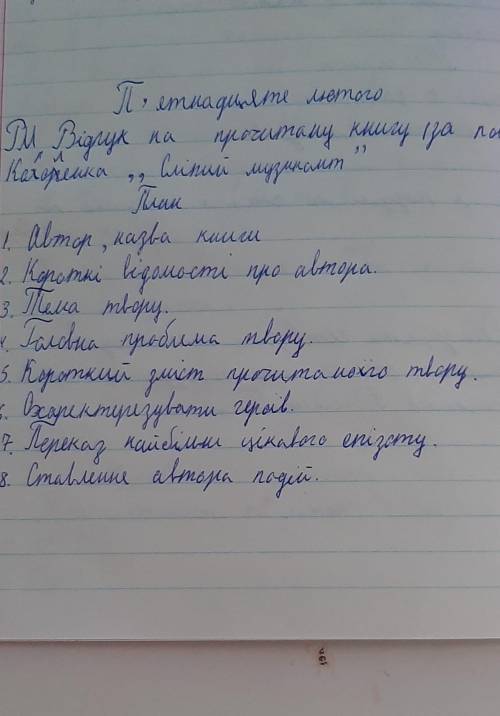 П'ятнадцяте лютого
РМ Відгук на прочитану книгу (за по
Короленка ,, Сліпий музикант"
План
1. Автор, назва книги
2. Короткі відомості про автора.
3. Тема твору.
4. Головна проблема твору.
5. Короткий зміст прочитаного твору.
6. Охарактеризувати героїв.
7. Переказ найбільш цікавого епізоту.
8. Ставлення автора подій.